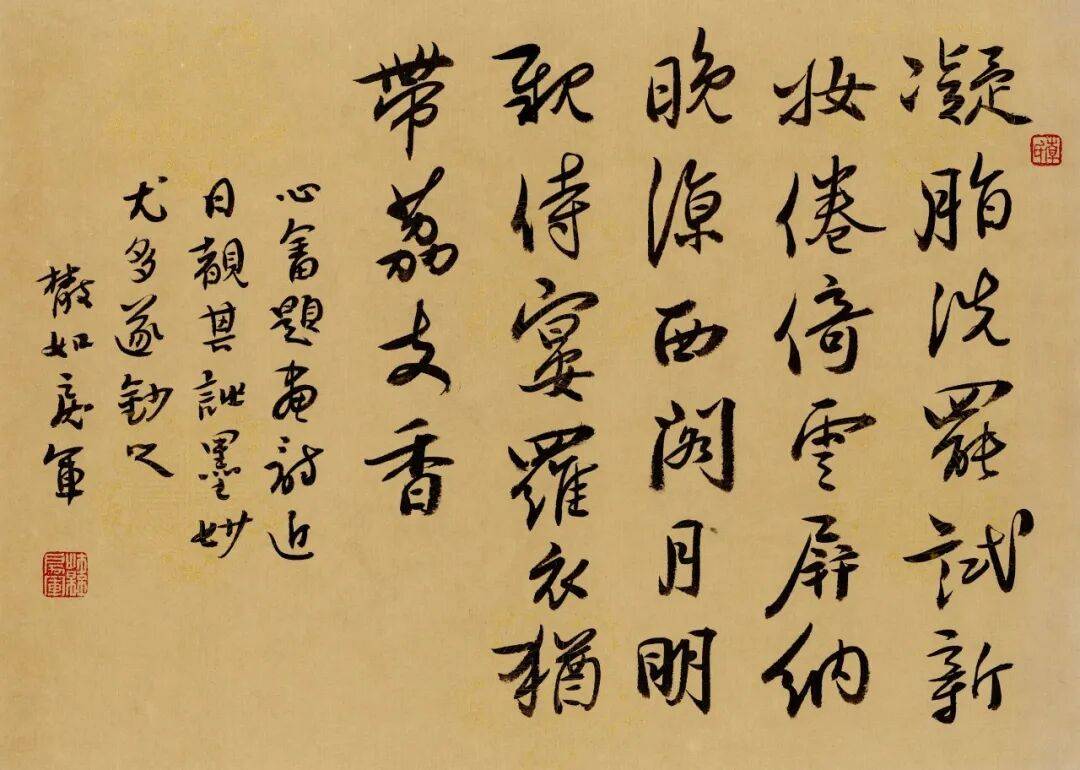 凝脂洗罷試新
妝倦倚雲屏納
晚涼西閣月明
親侍宴羅衣猶
帶荔支香
心畬題畫詩近
日其墨妙
尤多遂鈔之
如軍